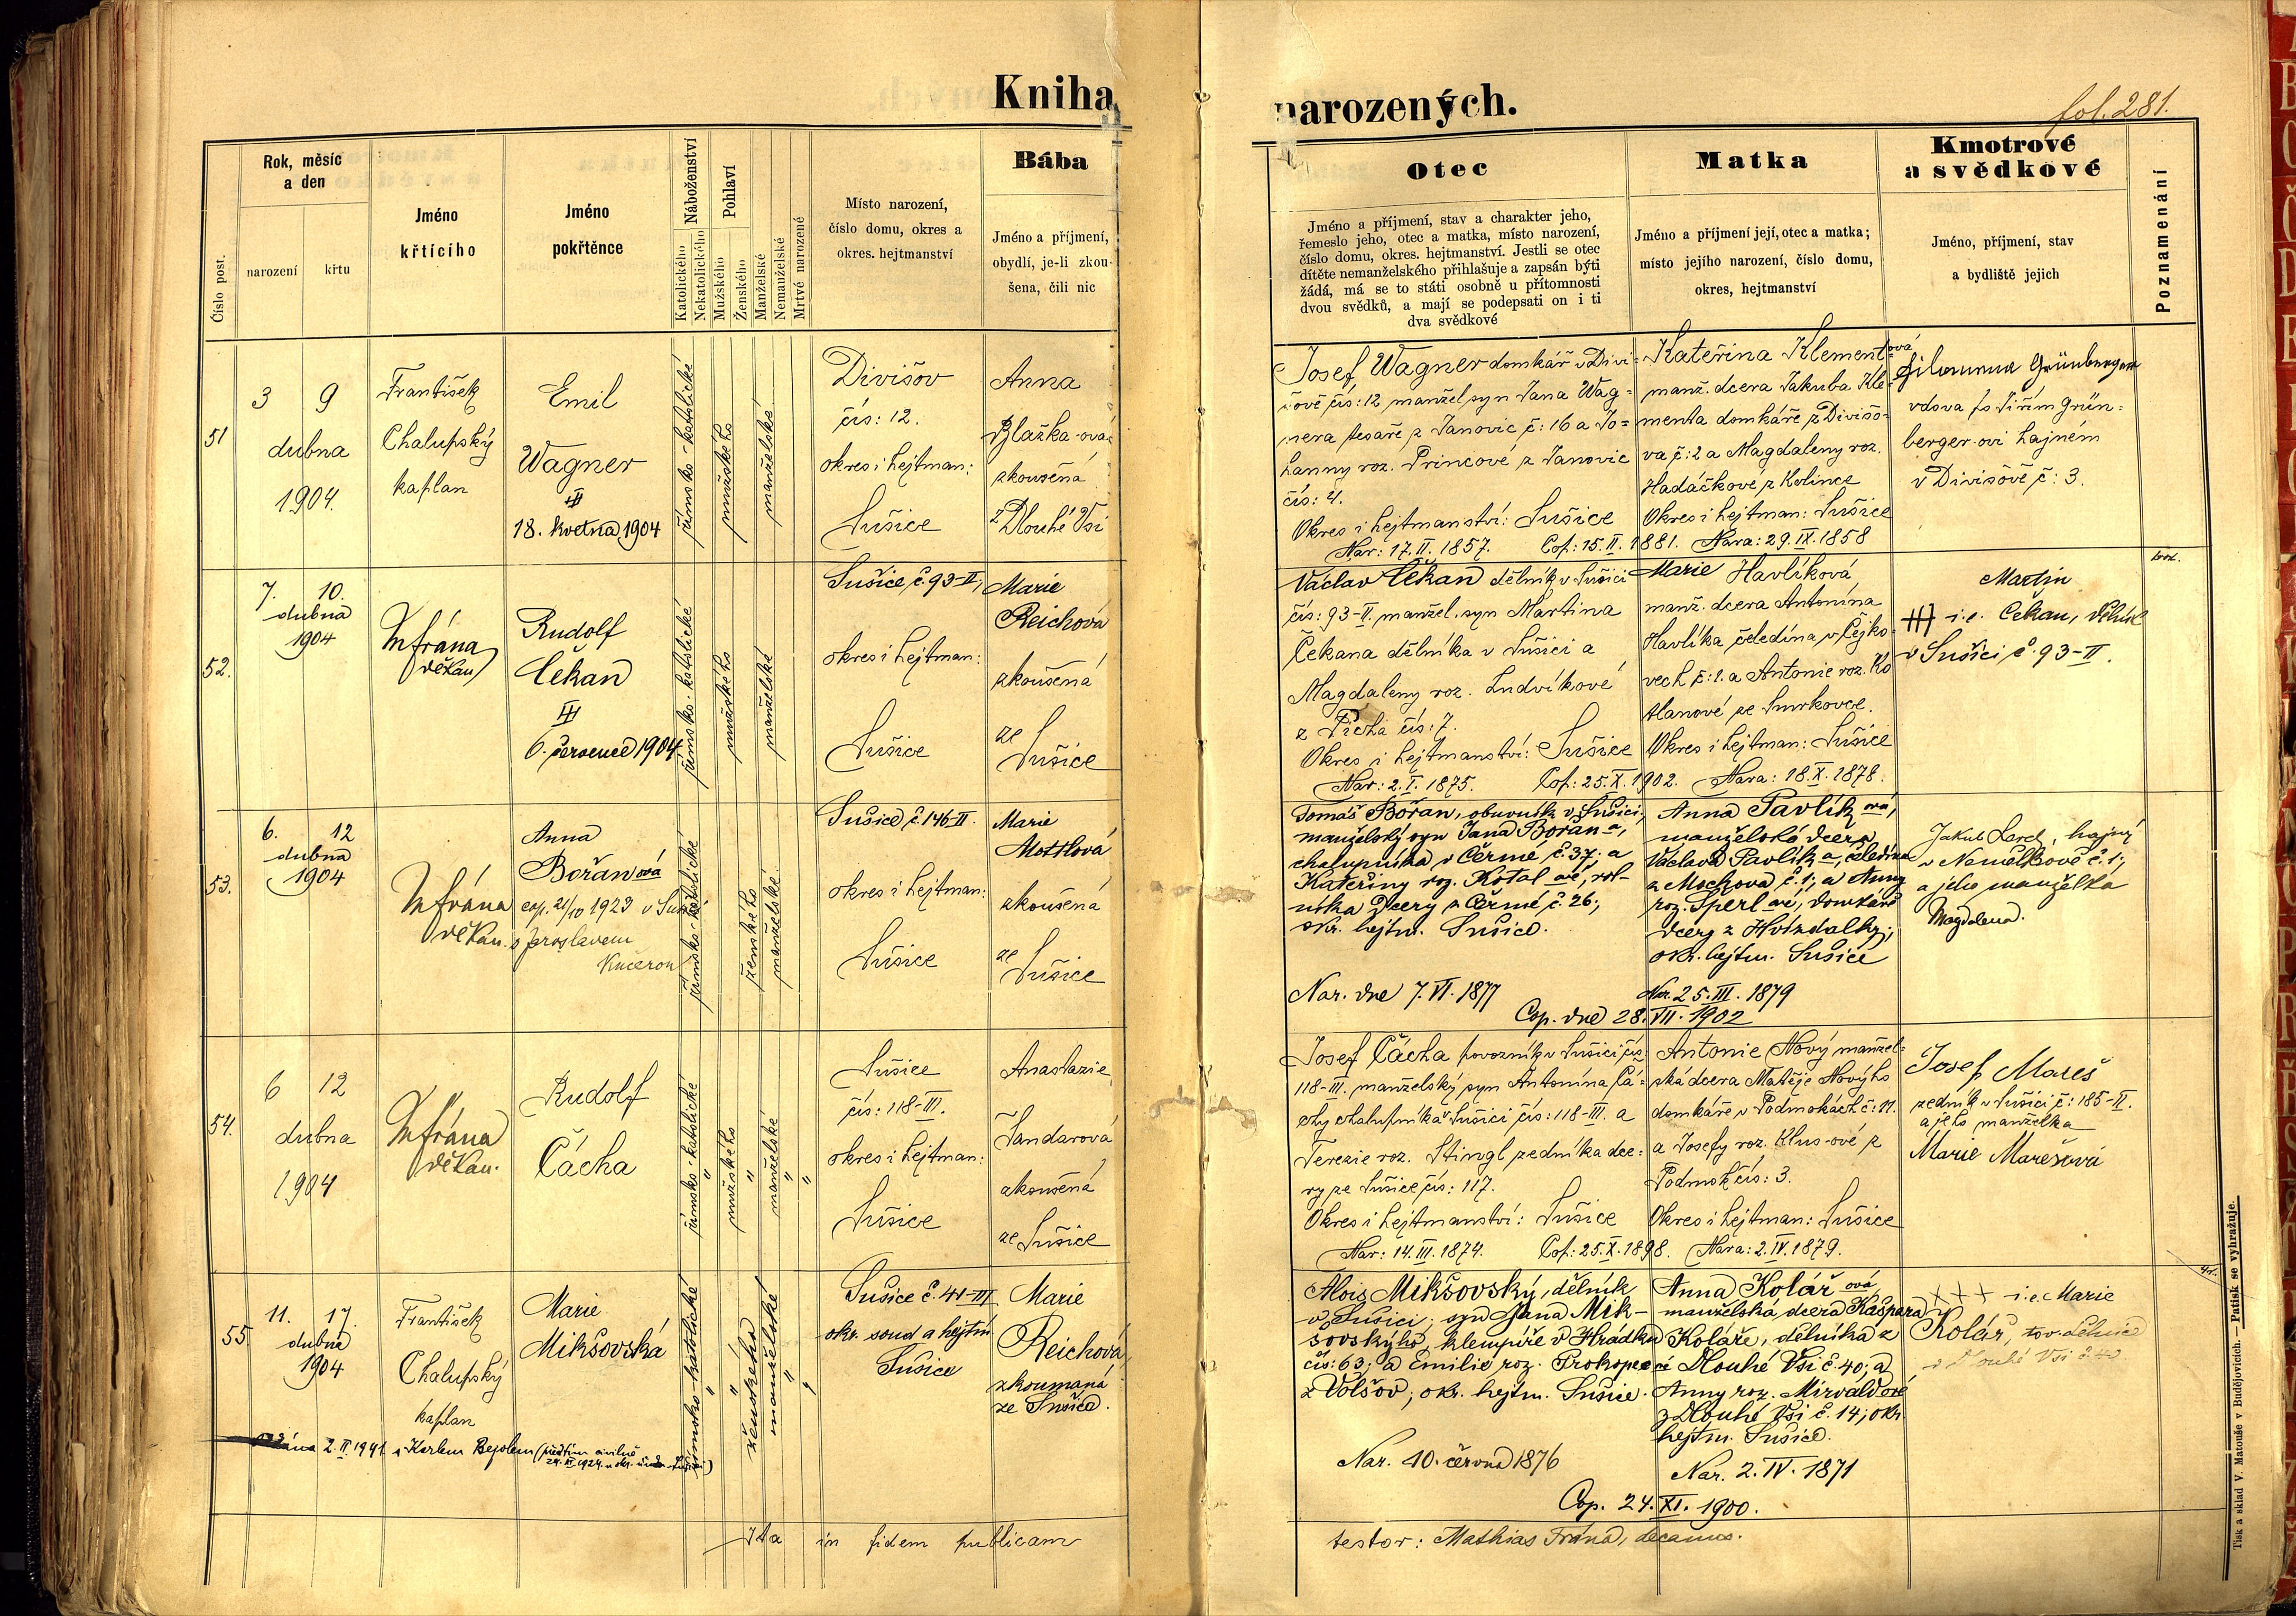 Kniha narozených.
fol. 281.
Číslo post.
Rok, měsíc
a den
narození
křtu
Jméno
křtícího
Jméno
pokřtěnce
Náboženství
Katolického
Nekatolického
Pohlaví
Mužského
Ženského
Manželské
Nemanželské
Mrtvě narozené
Místo narození,
číslo domu, okres a
okres. hejtmanství
Bába
Jméno a příjmení,
obydlí, je-li zkou-
šena, čili nic
Otec
Jméno a příjmení, stav a charakter jeho,
řemeslo jeho, otec a matka, místo narození,
číslo domu, okres. hejtmanství. Jestli se otec
dítěte nemanželského přihlašuje a zapsán býti
žádá, má se to státi osobně u přítomnosti
dvou svědků, a mají se podepsati on i ti
dva svědkové
Matka
Jméno a příjmení její, otec a matka;
místo jejího narození, číslo domu,
okres, hejtmanství
Kmotrové
a svědkové
Jméno, příjmení, stav
a bydliště jejich
Poznamenání
51
3 9
dubna
1904.
František
Chalupský
kaplan
Emil
Wagner
18. května 1904
římsko-katolické
mužského
manželské
Divišov
čís: 12.
okres i hejtman:
Sušice
Anna
Blažka-ová
zkoušená
z Dlouhé Vsi
Josef Wagner domkář v Divi-
šově čís: 12 manžel. syn Jana Wag-
nera tesaře z Janovic č: 16 a Jo-
hanny roz. Princové z Janovic
čís: 4.
Okres i hejtmanství: Sušice
Nar: 17. II. 1857. Cop: 15. II. 1881.
Kateřina Klementová
manž. dcera Jakuba Kle-
menta domkáře z Divišo-
va č: 2 a Magdaleny roz.
Hadáčkové z Kolince
Okres i hejtman: Sušice
Nara: 29. IX. 1858
Filomena Grünberger
vdova po Jiřím Grün-
berger-ovi hajném
v Divišově č: 3.
52.
7. 10.
dubna
1904
M Frána
děkan
Rudolf
Čekan
6. července 1904
římsko-katolické
mužského
manželské
Sušice č. 93-II,
okres i hejtman:
Sušice
Marie
Reichová
zkoušená
ze
Sušice
Václav Čekan dělník v Sušici
čís: 93-II. manžel. syn Martina
Čekana dělníka v Sušici a
Magdaleny roz. Ludvíkové
z čís: 7.
Okres i hejtmanství: Sušice
Nar: 2. I. 1875. Cop: 25. X. 1902.
Marie Havlíková
manž. dcera Antonína
Havlíka čeledína v Čejko-
vech č: 2. a Antonie roz. Ko
ze Smrkovce.
Okres i hejtman: Sušice
Nara: 18. X. 1878.
Martin
+++ i.e. Čekan, dělník
v Sušici č. 93-II.
53.
6. 12
dubna
1904
M Frána
děkan.
Anna
Bořanová
cop. 21/10 1923 v Sušici
s Jaroslavem
Kučerou
římsko-katolické
ženského
manželské
Sušice č. 146-II.
okres i hejtman:
Sušice
Marie
Mottlová
zkoušená
ze
Sušice
Tomáš Bořan, obuvník v Sušici,
manželský syn Jana Bořana,
chalupníka v Čermé č. 37; a
Kateřiny roz. Kotalové, rol-
níka dcery z Čermé č. 26;
okr. hejtm. Sušice.
Nar. dne 7. VI. 1877
Cop. dne 28. VII. 1902
Anna Pavlíková,
manželská dcera
Václava Pavlíka, čeledína
z Mochova č. 1; a Anny
roz. Šperlové, domkáře
dcery z Hvízdalky;
okr. hejtm. Sušice
Nar. 25. III. 1879
Jakub Lerch, hajný
v Nemělkově č. 1;
a jeho manželka
Magdalena.
54.
6 12
dubna
1904
M Frána
děkan.
Rudolf
Čácha
římsko-katolické
mužského
manželské
Sušice
čís: 118-III.
okres i hejtman:
Sušice
Anastazie
Šandarová
zkoušená
ze Sušice
Josef Čácha povozník v Sušici čís:
118-III. manželský syn Antonína Čá-
chy chalupníka v Sušici čís: 118-III. a
Terezie roz. Stingl zedníka dce-
ry ze Sušice čís: 117.
Okres i hejtmanství: Sušice
Nar: 14. III. 1874. Cop: 25. X. 1898.
Antonie Nový manžel-
ská dcera Matěje Nového
domkáře v Podmokách č: 11.
a Josefy roz. Klus-ové z
Podmok čís: 3.
Okres i hejtman: Sušice
Nara: 2. IV. 1879.
Josef Mareš
zedník v Sušici č: 185-II.
a jeho manželka
Marie Marešová
55.
11. 17.
dubna
1904
František
Chalupský
kaplan
Marie
Mikšovská
2. II 1941 s Karlem Bejslem (předtím civilně
římsko-katolické
ženského
manželské
Sušice č. 41-III
okr. soud a hejtm.
Sušice
Marie
Reichová
zkoumaná
ze Sušice.
Alois Mikšovský, dělník
v Sušici; syn Jana Mik-
šovského, klempíře v Hrádku
čís: 63; a Emilie roz. Prokopcové
z Volšov; okr. hejtm. Sušice.
Nar. 10. června 1876
Cop. 24. XI. 1900.
Anna Kolářová
manželská dcera Kašpara
Koláře, dělníka z
Dlouhé Vsi č. 40; a
Anny roz. Mirvaldové
z Dlouhé Vsi č. 14; okr.
hejtm. Sušice.
Nar. 2. IV. 1871
+++ i.e. Marie
Kolář, tov. dělnice
v Dlouhé Vsi č. 40
Ita in fidem publicam
testor: Mathias Frána, decanus.
Tisk a sklad V. Matouše v Budějovicích. — Patisk se vyhražuje.